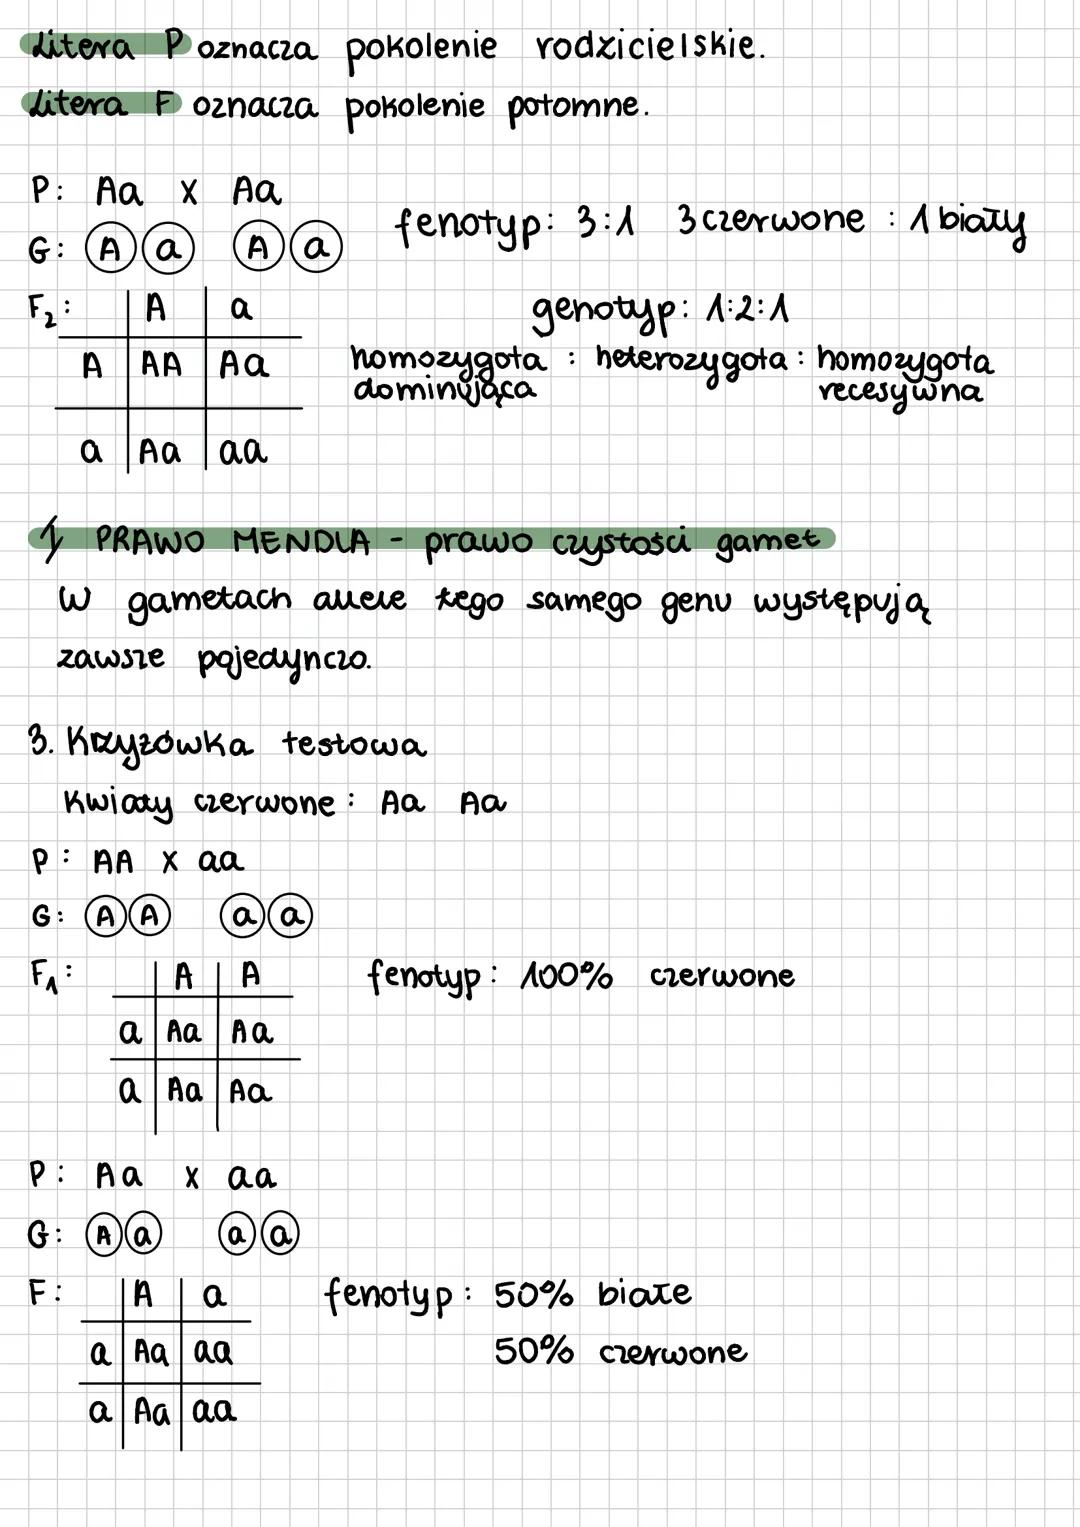 Litera P oznacza pokolenie rodzicielskie.
Litera F oznacza pokolenie potomne.
P: Aa x Aa
G: A a A a
fenotyp: 3:1 3 czerwone : 1 biały
F2: A a
A AA Aa
a Aa aa
genotyp: 1:2:1
homozygota dominująca : heterozygota : homozygota recesywna
1 PRAWO MENDLA - prawo czystości gamet
W gametach allele tego samego genu występują
zawsze pojedynczo.
3. Krzyżówka testowa
Kwiaty czerwone: Aa Aa
P: AA x aa
G: A A a a
F1: A A
a Aa Aa
a Aa Aa
fenotyp: 100% czerwone
P: Aa x aa
G: A a a a
F: A a
a Aa aa
a Aa aa
fenotyp: 50% białe
50% czerwone